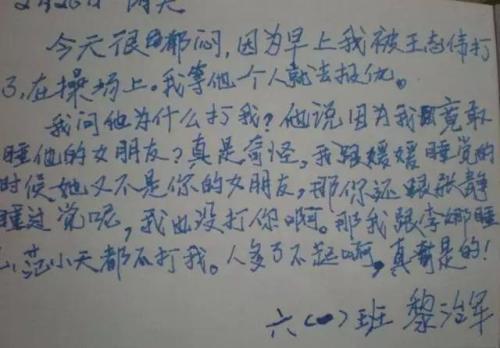 2月26日 阴天
今天很郁闷,因为早上我被王志伟打
了,在操场上。我等他个人就去报仇。
我问他为什么打我?他说因为我竟敢
睡他的女朋友?真是奇怪,我跟媛媛睡觉的
时候她又不是你的女朋友,那你还跟张静
睡过觉呢,我也没打你啊。那我跟李娜睡
范小天都不打我。人多了不起啊,真奇是的!
六(一)班 黎治军